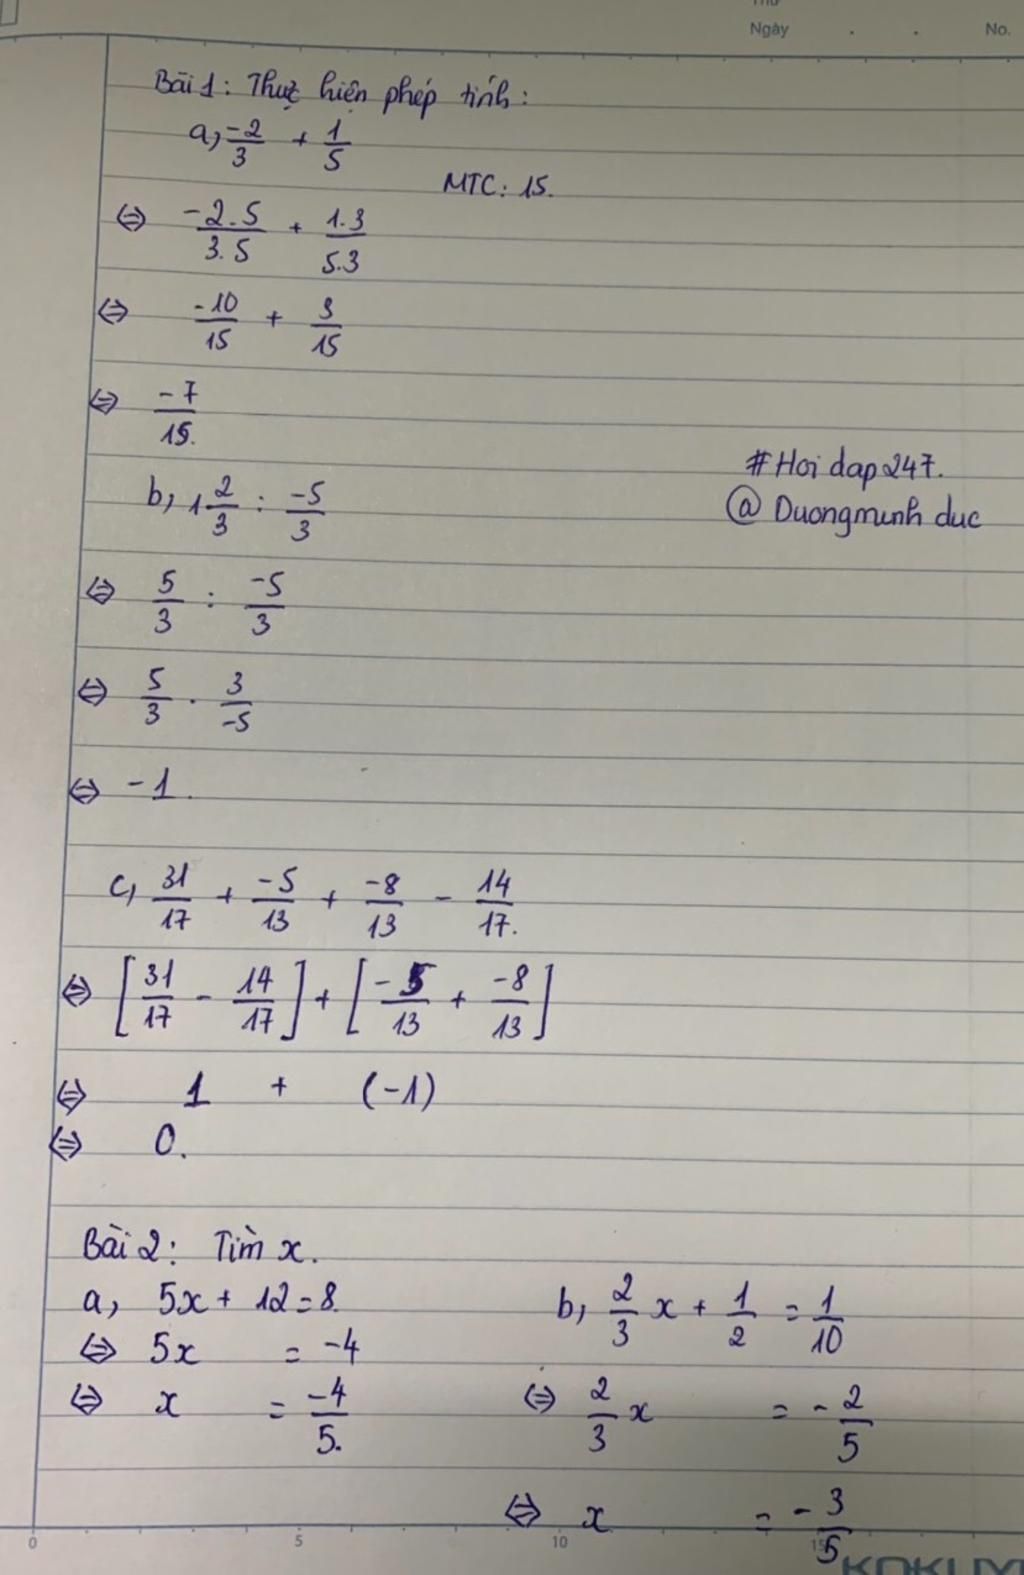 Thứ
Ngày . . No.
Bài 1: Thực hiện phép tính:
a, -2/3 + 1/5
MTC: 15.
⇔ -2.5/3.5 + 1.3/5.3
⇔ -10/15 + 3/15
⇔ -7/15.
#Hoi dap 247.
b, 1 2/3 : -5/3
@ Duongminh duc
⇔ 5/3 : -5/3
⇔ 5/3 . 3/-5
⇔ -1.
c, 31/17 + -5/13 + -8/13 - 14/17.
⇔ [31/17 - 14/17] + [-5/13 + -8/13]
⇔ 1 + (-1)
⇔ 0.
Bài 2: Tìm x.
a, 5x + 12 = 8.
⇔ 5x = -4
⇔ x = -4/5.
b, 2/3 x + 1/2 = 1/10
⇔ 2/3 x = - 2/5
⇔ x = - 3/5
0 5 10 15